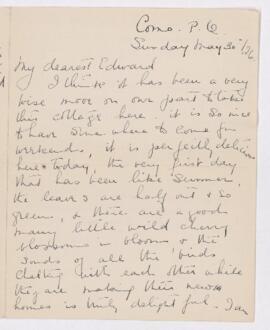 Como. P. Q
Sunday May 30th/26.
My dearest Edward
I think it has been a very
wise move on our part to take
this cottage here. it is so nice
to have some where to come for
weekends, it is perfectly delicious
here today, the very first day
that has been like summer,
the leaves are half out & so
green, & there are a good
many little wild cherry
blossoms in bloom & the
sounds of all the birds
chatting with each other while
they are making their new
homes is truly delightful.